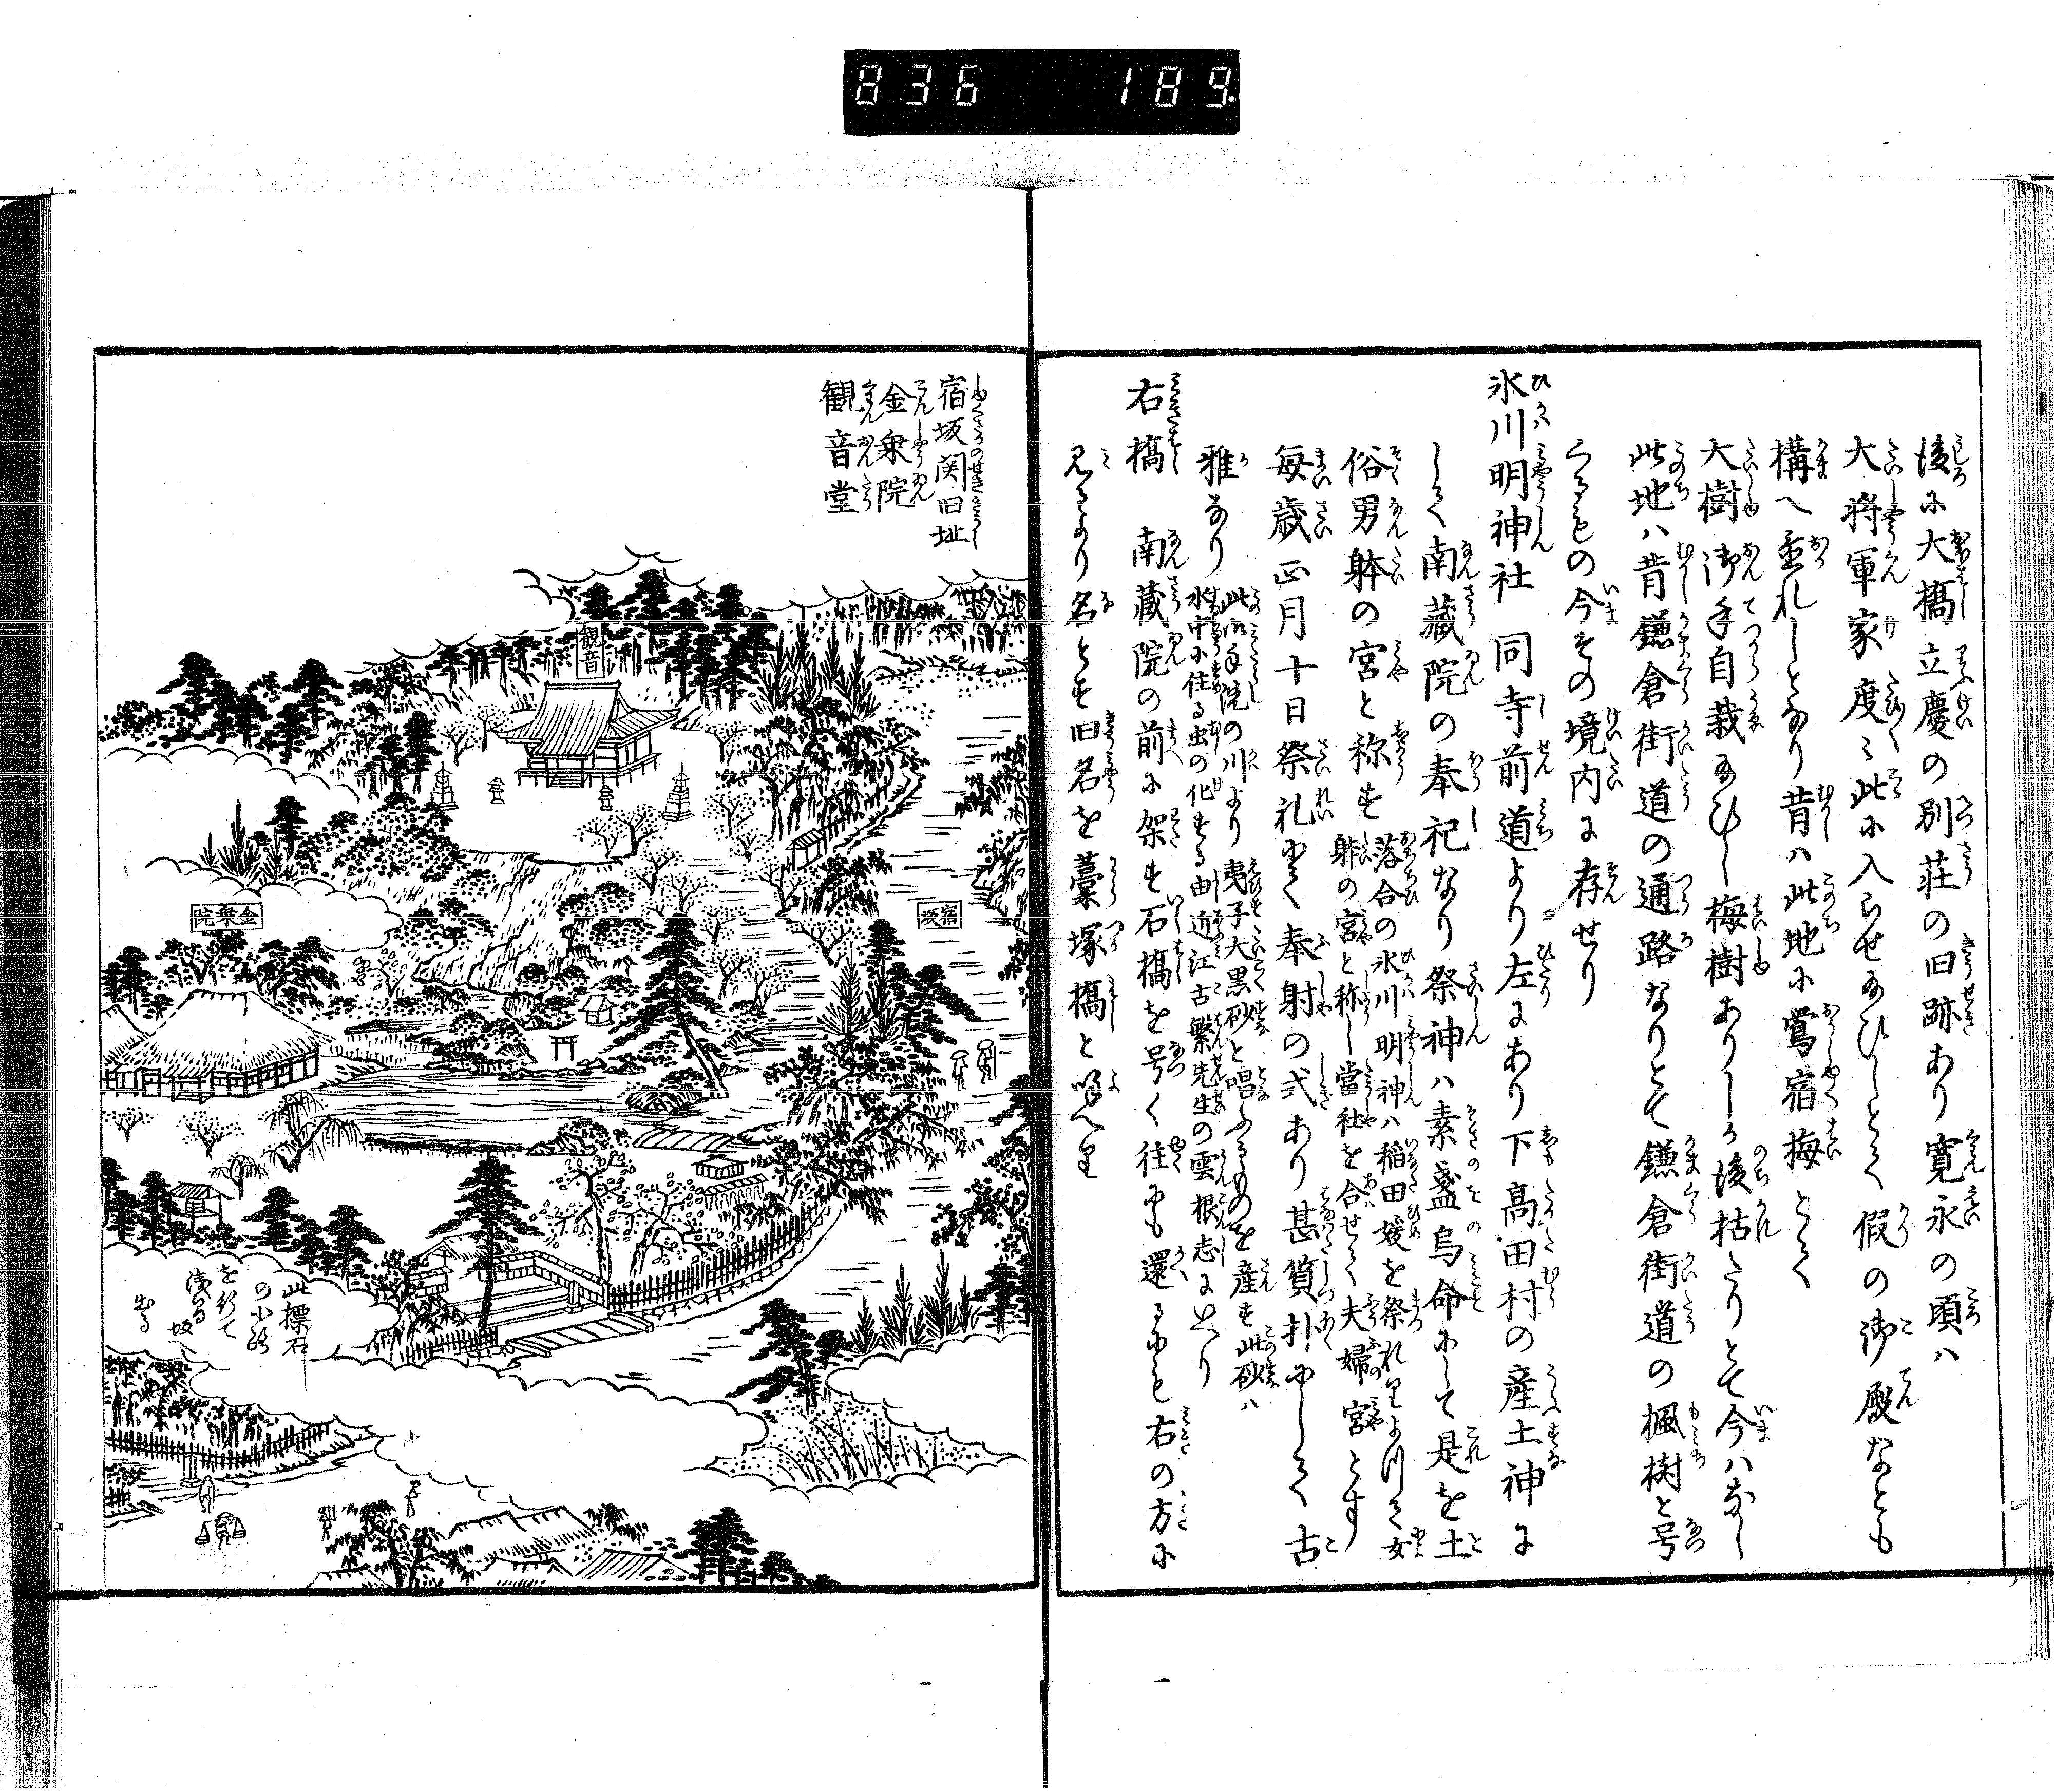 836 189
後に大橋立慶の別荘の旧跡あり寛永の頃ハ
大将軍家度々此に入らせ給ひしとて假の御殿なとも
構へ置れしとなり昔ハ此地に鴬宿梅とて
大樹御手自栽給ひし梅樹ありしか後枯たりとて今ハなし
此地ハ昔鎌倉街道の通路なりとて鎌倉街道の楓樹と号
くるもの今その境内に存せり
氷川明神社 同寺前道より左にあり下高田村の産土神に
して南蔵院の奉祀なり祭神ハ素盞烏命にして是を土
俗男躰の宮と称す
落合の氷川明神ハ稲田媛を祭れりよつて女
躰の宮と称し當社を合せて夫婦の宮とす
毎歳正月十日祭礼にて奉射の式あり甚質朴にして古
雅なり
此御手洗の川より夷子大黒砂と唱ふるものを産す此砂ハ
水中に住る虫の化する由近江古繁先生の雲根志に見へたり
右橋 南蔵院の前に架す石橋を号く往にも還るにも右の方に
見るより名とす旧名を藁塚橋と呼へり
宿坂関旧址
金乗院
観音堂
観音
金乗院
宿坂
此標石
の小路
を行て
坂へ
出る